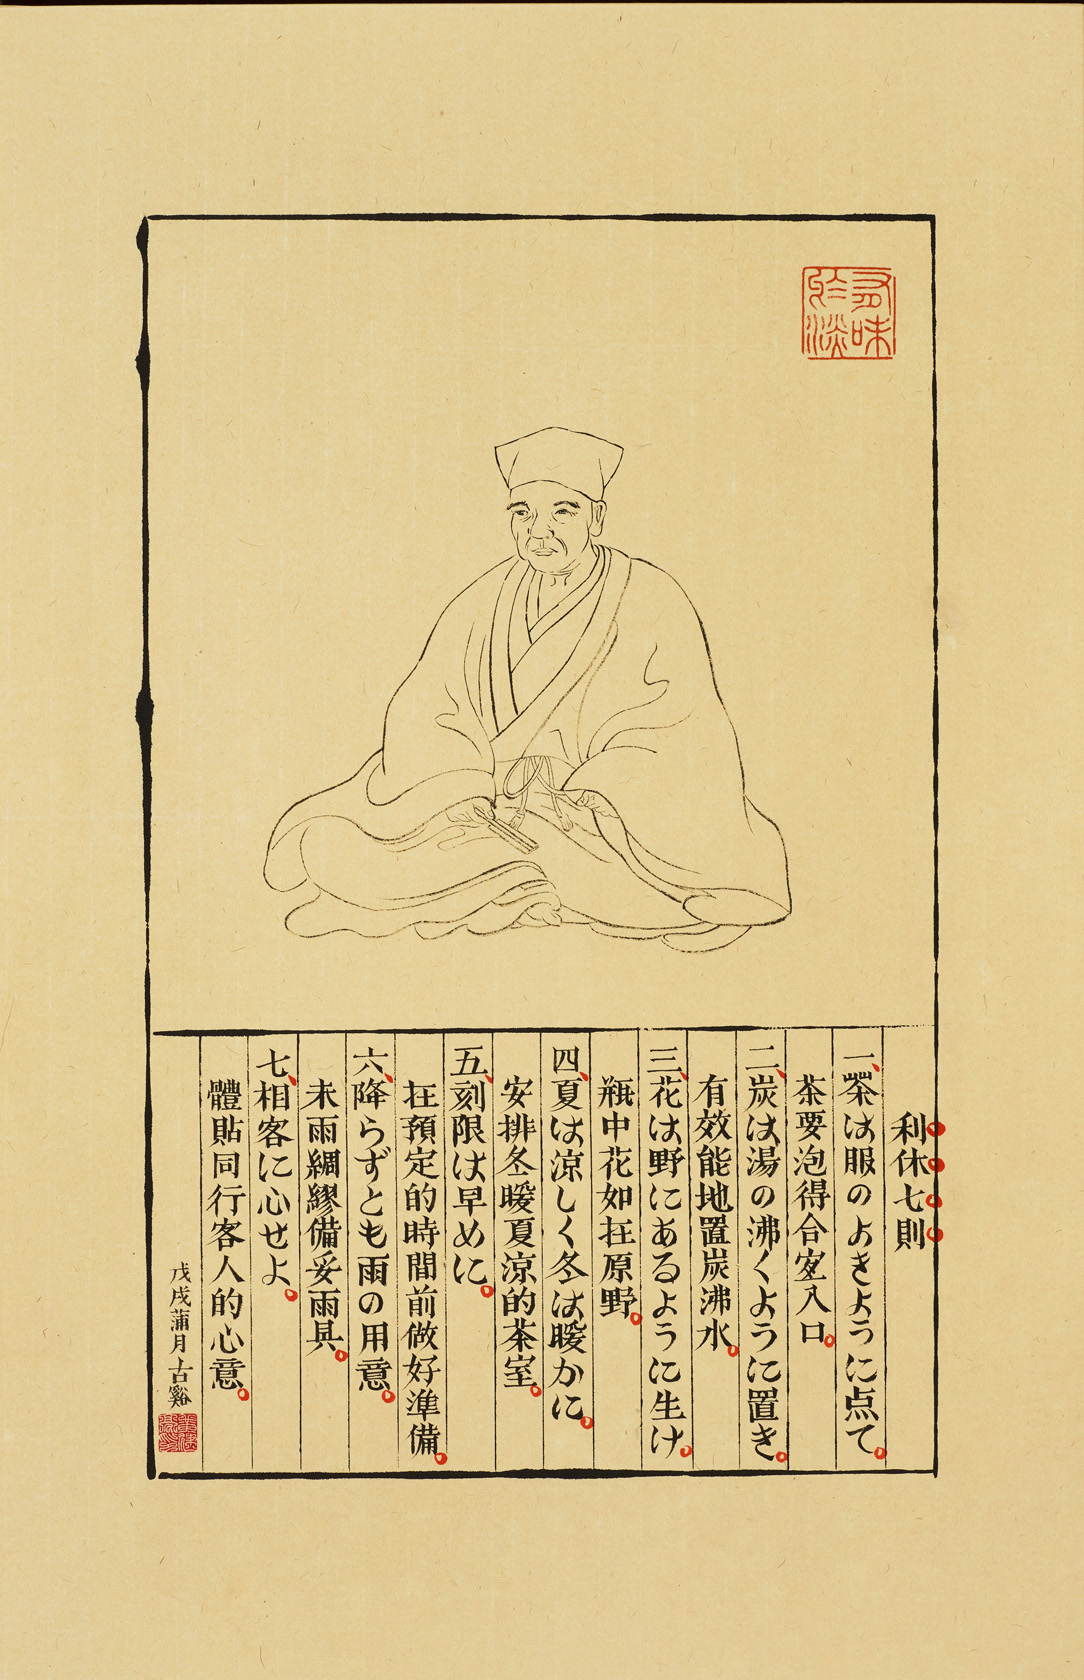 有味
於淡
利休七則
一、茶は服のよきように点て。
茶要泡得合宜入口。
二、炭は湯の沸くように置き。
有效能地置炭沸水。
三、花は野にあるように生け。
瓶中花如在原野。
四、夏は涼しく冬は暖かに。
安排冬暖夏涼的茶室。
五、刻限は早めに。
在預定的時間前做好準備。
六、降らずとも雨の用意。
未雨綢繆備妥雨具。
七、相客に心せよ。
體貼同行客人的心意。
戊戌蒲月古谿